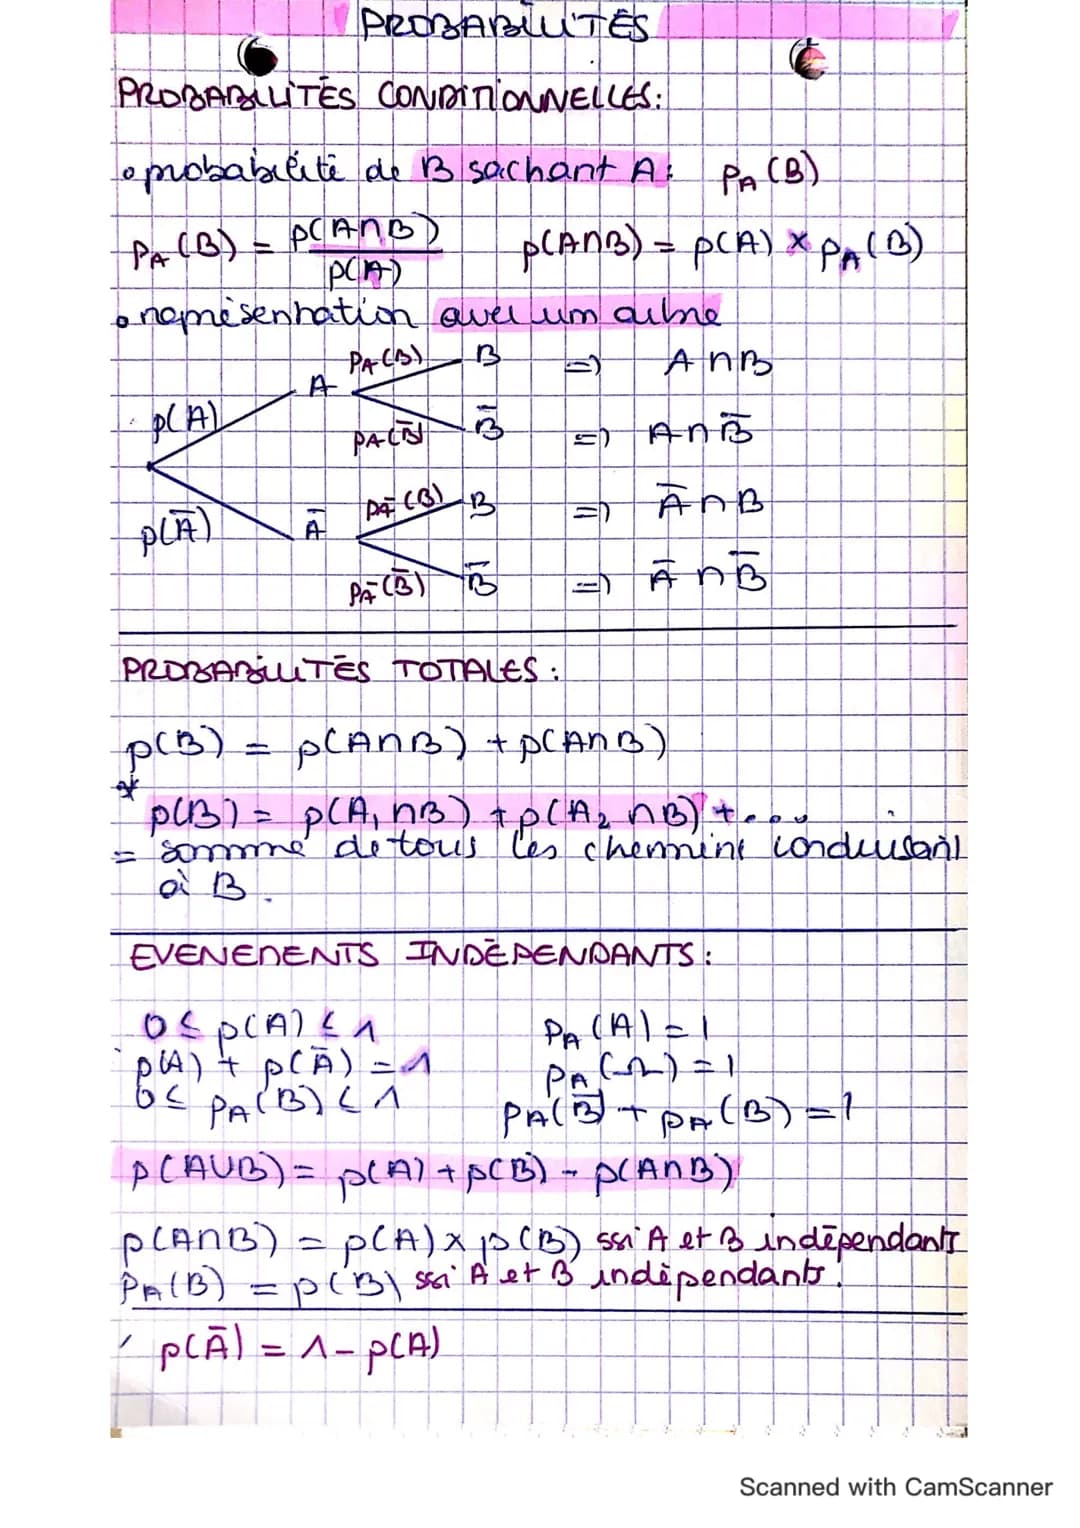 PROBABILITÉS
PROBABILITÉS CONDITIONNELLES:
• probabilité de B sachant A: p_A(B)
p_A(B) = p(A∩B) / p(A)    p(A∩B) = p(A) × p_A(B)
• représentation avec un arbre
p_A(B) B => A∩B
A
p(A) p_A(B̄) B̄ => A∩B̄
p_Ā(B) B => Ā∩B
p(Ā) Ā
p_Ā(B̄) B̄ => Ā∩B̄
PROBABILITÉS TOTALES:
p(B) = p(A∩B) + p(A∩B)
* p(B) = p(A₁∩B) + p(A₂∩B) + ...
= somme de tous les chemins conduisant
à B.
EVENEMENTS INDÉPENDANTS:
0 ≤ p(A) ≤ 1    p_A(A) = 1
p(A) + p(Ā) = 1    p_A(Ω) = 1
0 ≤ p_A(B) ≤ 1    p_A(B̄) + p_A(B) = 1
p(A∪B) = p(A) + p(B) - p(A∩B)
p(A∩B) = p(A) × p(B) ssi A et B indépendants
p_A(B) = p(B) ssi A et B indépendants.
p(Ā) = 1 - p(A)
Scanned with CamScanner